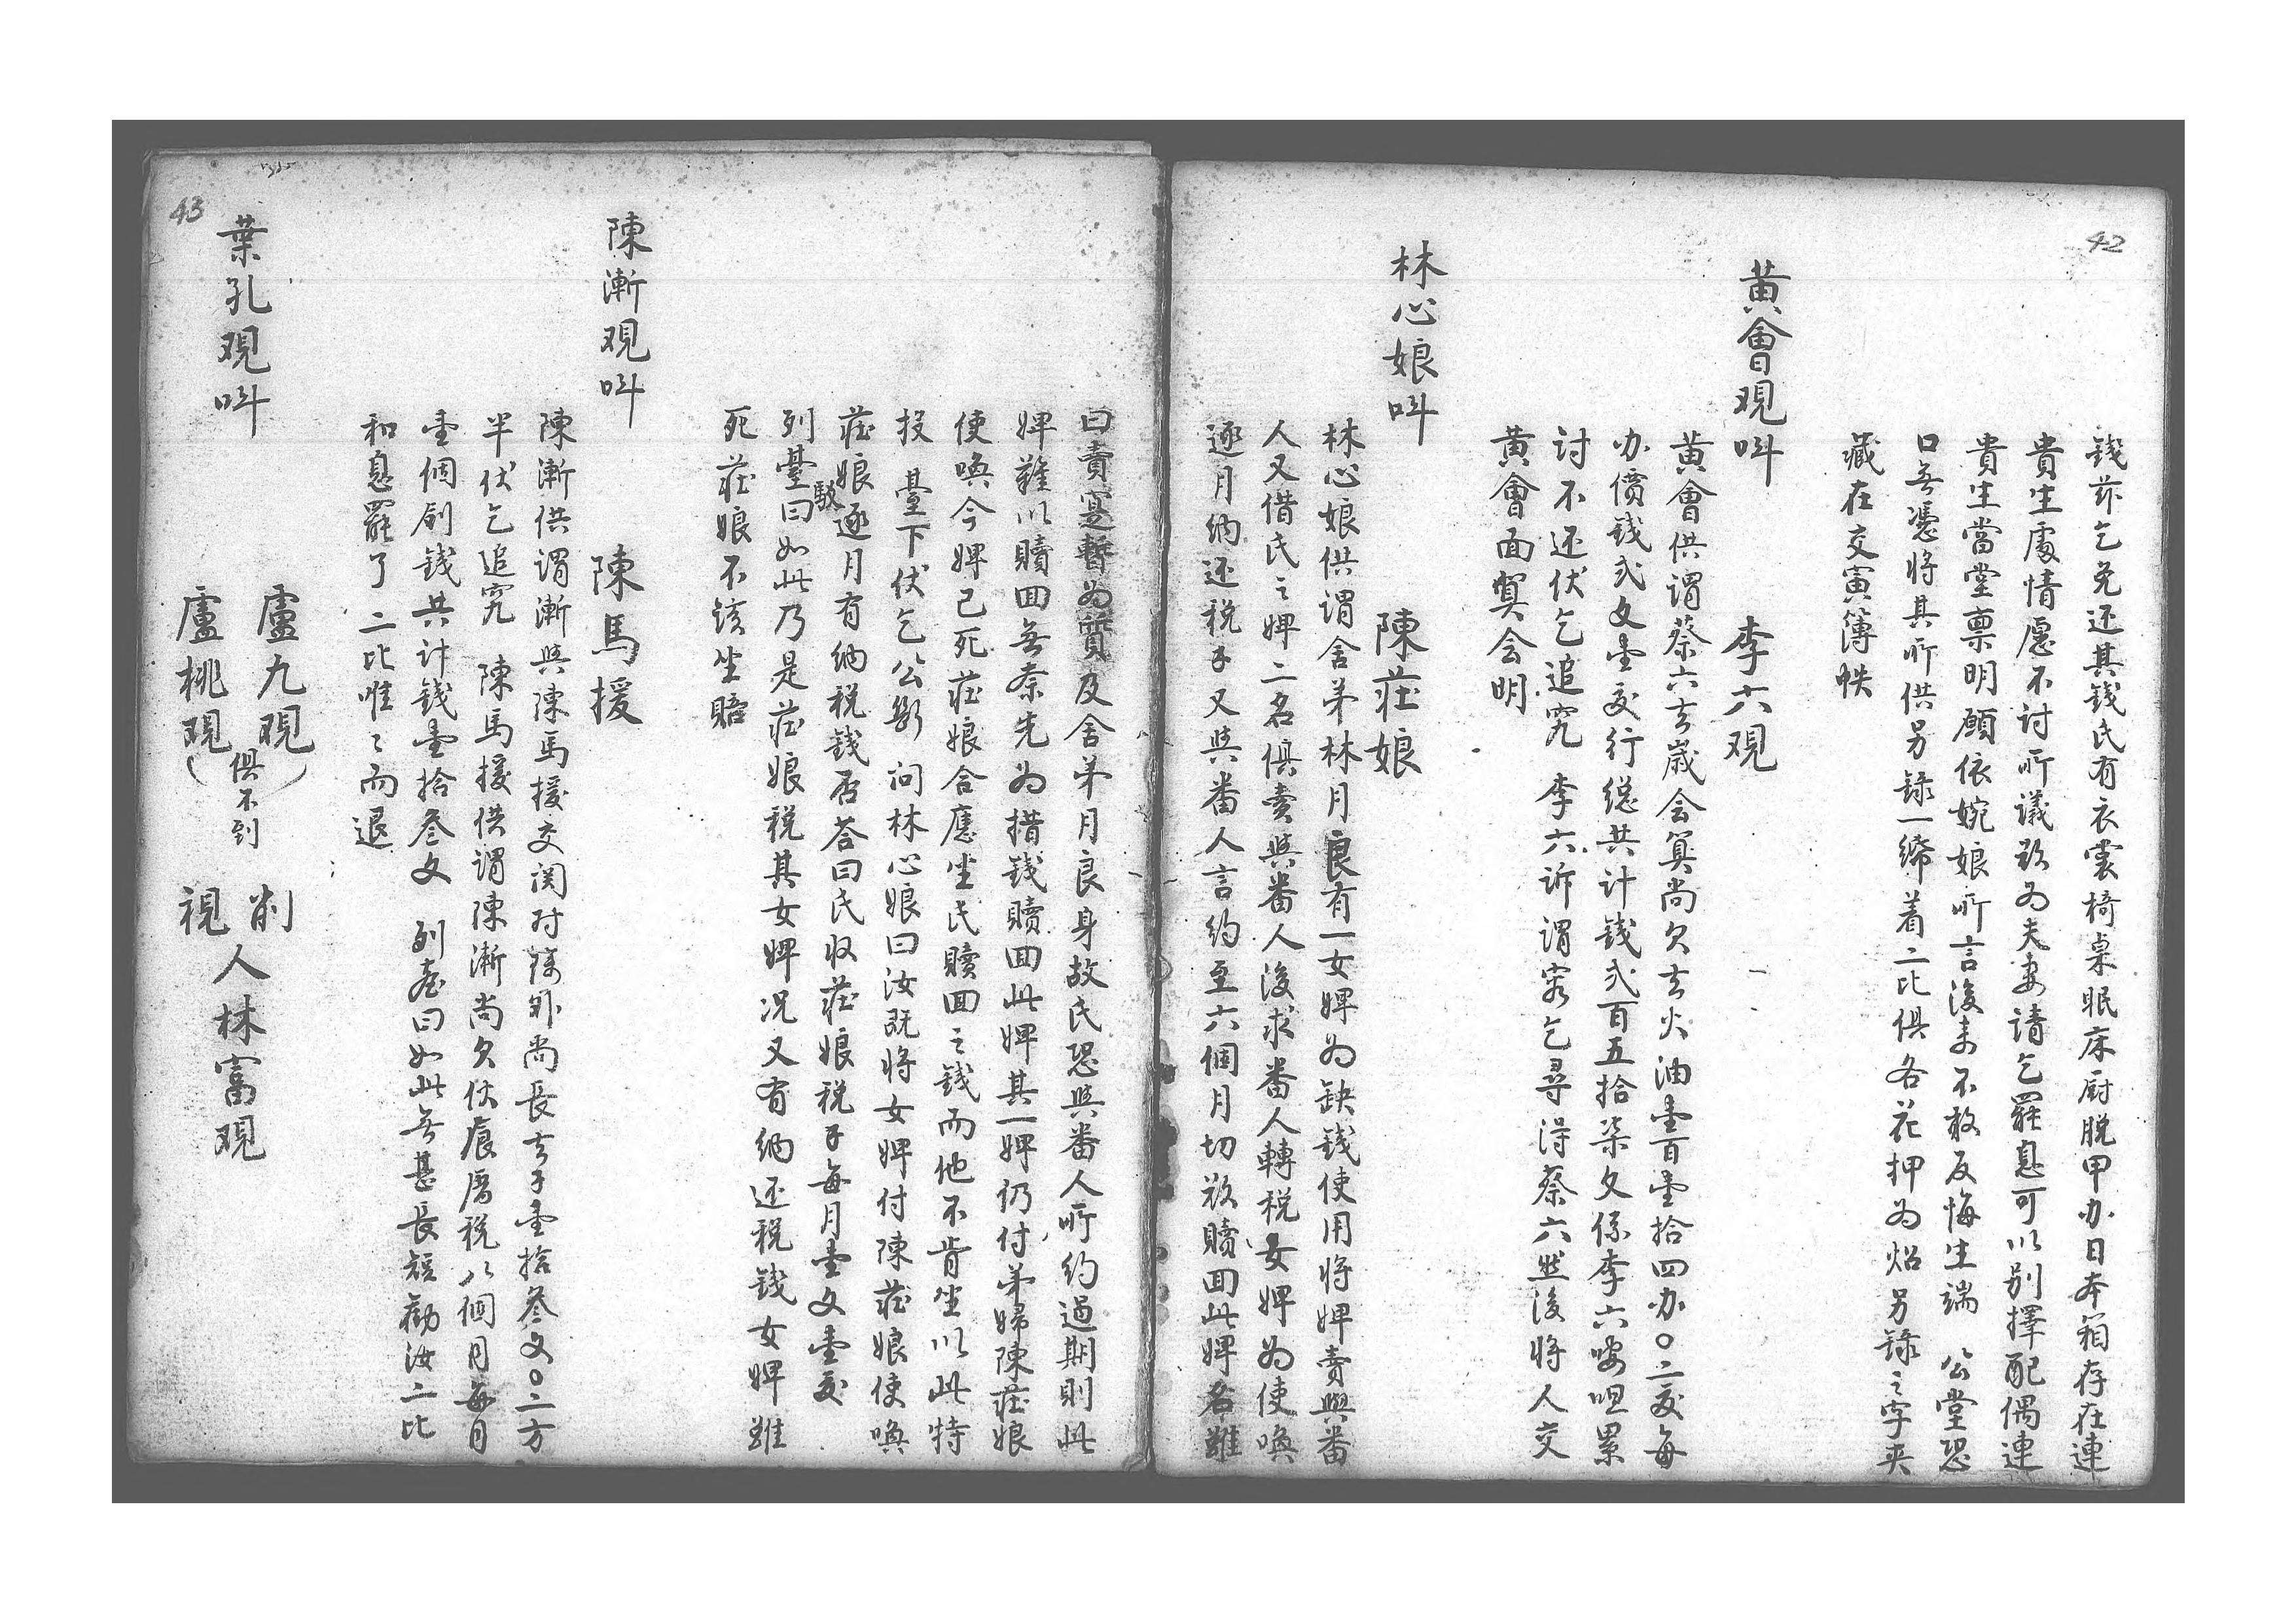 42
錢茲乞免还其錢氏有衣裳椅桌眠床厨脱甲办日本箱存在連
貴生處情愿不討所議欲为夫妻請乞罷息可以别擇配偶連
貴生當堂禀明願依婉娘所言後来不敢反悔生端 公堂恐
口無憑将其所供另録一縴着二比俱各花押为炤另録之字夹
藏在交寅簿帙
黄會观呌 李六观
黄會供謂蔡六去歲会筭尚欠去火油壹百壹拾四办〇二文每
办價錢弍文壹文行總共計錢弍百五拾柒文係李六 咀累
討不还伏乞追究 李六訴謂容乞尋得蔡六然後将人交
黄會面筭会明
林心娘呌 陳莊娘
林心娘供謂舍弟林月良有一女婢为缺錢使用将婢賣與番
人又借氏之婢二名俱賣與番人後求番人轉税女婢为使喚
逐月納还税子又與番人言約至六個月切欲贖回此婢名雖
曰賣寔暫为質及舍弟月良身故氏恐與番人所約過期則此
婢難以贖回無奈先为措錢贖回此婢其一婢仍付弟婦陳莊娘
使喚今婢已死莊娘合應坐氏贖回之錢而他不肯坐以此特
投 臺下伏乞公断 问林心娘曰汝既将女婢付陳莊娘使喚
莊娘逐月有納税錢否荅曰氏收莊娘税子每月壹文壹文
列臺駁曰如此乃是莊娘税其女婢况又有納还税錢女婢雖
死莊娘不該坐賠
陳漸观呌 陳馬援
陳漸供謂漸與陳馬援交関对除外尚長去子壹拾叁文〇二方
半伏乞追究 陳馬援供謂陳漸尚欠伙食厝税八個月每月
壹個钊錢共計錢壹拾叁文 列台曰如此無甚長短勸汝二比
和息罷了二比唯〻而退
葉孔观呌 盧九观 盧桃观（俱不到） 削視人林富观
43